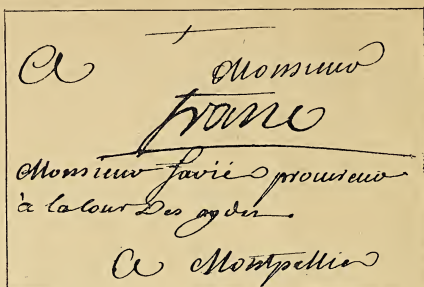 A Monsieur
franc
Monsieur Savié procureur
à la Cour Des aydes
A Montpellier